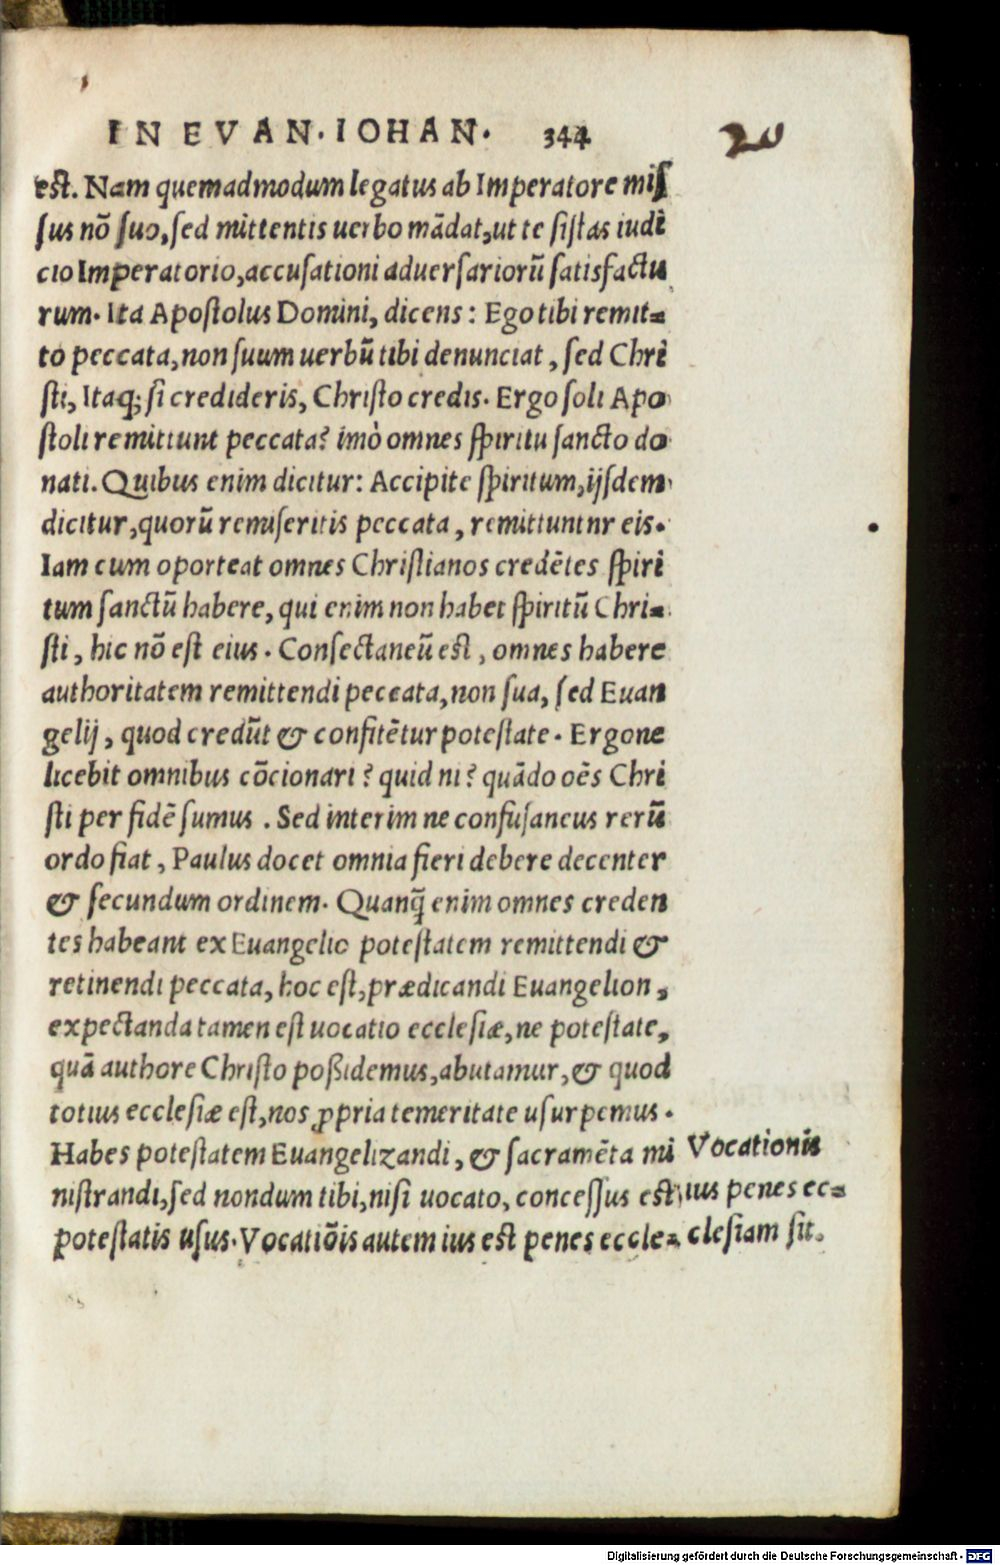 IN EVAN. IOHAN. 344
20
est. Nam quemadmodum legatus ab Imperatore mis
sus nõ suo, sed mittentis uerbo mãdat, ut te sistas iudi
cio Imperatorio, accusationi aduersariorũ satisfactu
rum. Ita Apostolus Domini, dicens: Ego tibi remit=
to peccata, non suum uerbũ tibi denunciat, sed Chri
sti, Itaq; si credideris, Christo credis. Ergo soli Apo
stoli remittunt peccata? imò omnes spiritu sancto do
nati. Quibus enim dicitur: Accipite spiritum, ijsdem
dicitur, quorũ remiseritis peccata, remittuntnr eis.
Iam cum oporteat omnes Christianos credẽtes spiri
tum sanctũ habere, qui enim non habet spiritũ Chri=
sti, hic nõ est eius. Consectaneũ est, omnes habere
authoritatem remittendi peccata, non sua, sed Euan
gelij, quod credũt & confitẽtur potestate. Ergone
licebit omnibus cõcionari? quid ni? quãdo oẽs Chri
sti per fidẽ sumus. Sed interim ne confusaneus rerũ
ordo fiat, Paulus docet omnia fieri debere decenter
& secundum ordinem. Quanq̃ enim omnes creden
tes habeant ex Euangelio potestatem remittendi &
retinendi peccata, hoc est, prædicandi Euangelion,
expectanda tamen est uocatio ecclesiæ, ne potestate,
quã authore Christo poßidemus, abutamur, & quod
totius ecclesiæ est, nos ꝓpria temeritate usurpemus.
Habes potestatem Euangelizandi, & sacramẽta mi
nistrandi, sed nondum tibi, nisi uocato, concessus est
potestatis usus. Vocatiõis autem ius est penes eccle=
Vocationis
ius penes ec=
clesiam sit.
Digitalisierung gefördert durch die Deutsche Forschungsgemeinschaft - DFG